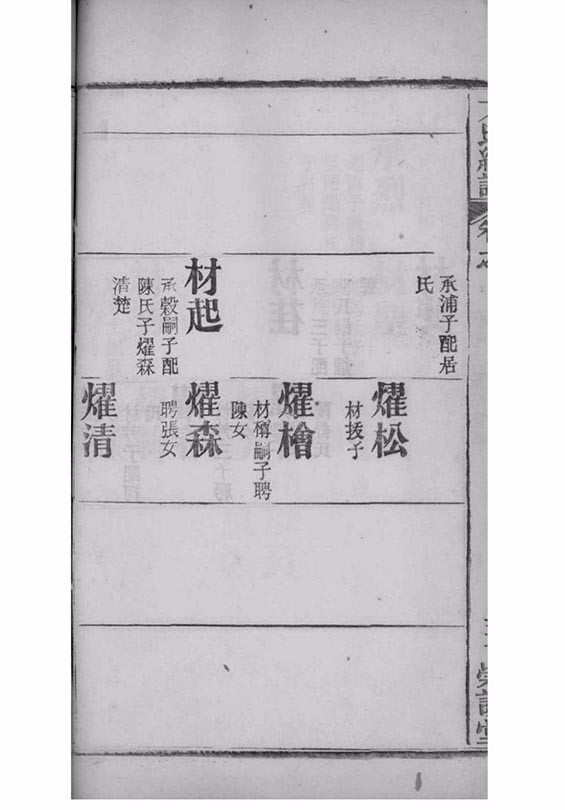 承浦子配居
氏
材起
承穀嗣子配
陳氏子燿森
清楚
燿松
材拔子
燿檜
材樽嗣子聘
陳女
燿森
聘張女
燿清